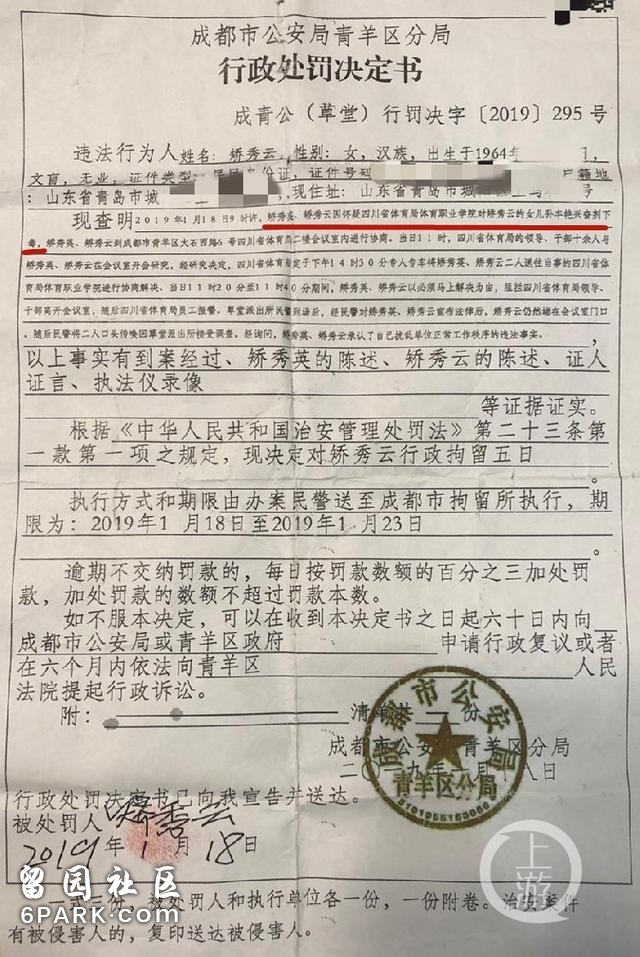 成都市公安局青羊区分局
行政处罚决定书
成青公（草堂）行罚决字〔2019〕295号
违法行为人姓名：矫秀云，性别：女，汉族，出生于1964年
文盲，无业，证件类型：居民身份证，证件号码 户籍地
：山东省青岛市城 现住址：山东省青岛市城
现查明2019年1月18日9时许，矫秀英、矫秀云因怀疑四川省体育局体育职业学院对矫秀云的女儿孙丰艳兴奋剂下
毒，矫秀英、矫秀云到成都市青羊区大石西路6号四川省体育局二楼会议室内进行协商。当日11时，四川省体育局的领导、干部十余人与
矫秀英、矫秀云在会议室开会研究，经研究决定，四川省体育局定于下午14时30分专人专车将矫秀英、矫秀云二人送往当事的四川省体
育局体育职业学院进行协商解决。当日11时20分至11时40分期间，矫秀英、矫秀云以必须马上解决为由，阻拦四川省体育局领导、
干部离开会议室，随后四川省体育局员工报警。草堂派出所民警到场后，经民警对矫秀英、矫秀云宣布法律后，矫秀云仍然堵在会议室门口
，随后民警将二人口头传唤回草堂派出所接受调查。经询问，矫秀英、矫秀云承认了自己扰乱单位正常工作秩序的违法事实。
以上事实有到案经过、矫秀英的陈述、矫秀云的陈述、证人
证言、执法仪录像
等证据证实。
根据《中华人民共和国治安管理处罚法》第二十三条第
一款第一项之规定，现决定对矫秀云行政拘留五日
。
执行方式和期限由办案民警送至成都市拘留所执行，期
限为：2019年1月18日至2019年1月23日
。
逾期不交纳罚款的，每日按罚款数额的百分之三加处罚
款，加处罚款的数额不超过罚款本数。
如不服本决定，可以在收到本决定书之日起六十日内向
成都市公安局或青羊区政府 申请行政复议或者
在六个月内依法向青羊区 人民
法院提起行政诉讼。
附： 清单共 份
成都市公安局青羊区分局
二〇一九年一月十八日
成都市公安局
青羊区分局
行政处罚决定书已向我宣告并送达。
被处罚人 矫秀云
2019年1月18日
一式三份，被处罚人和执行单位各一份，一份附卷。治安案件
有被侵害人的，复印送达被侵害人。
留园社区
6PARK.COM
上游